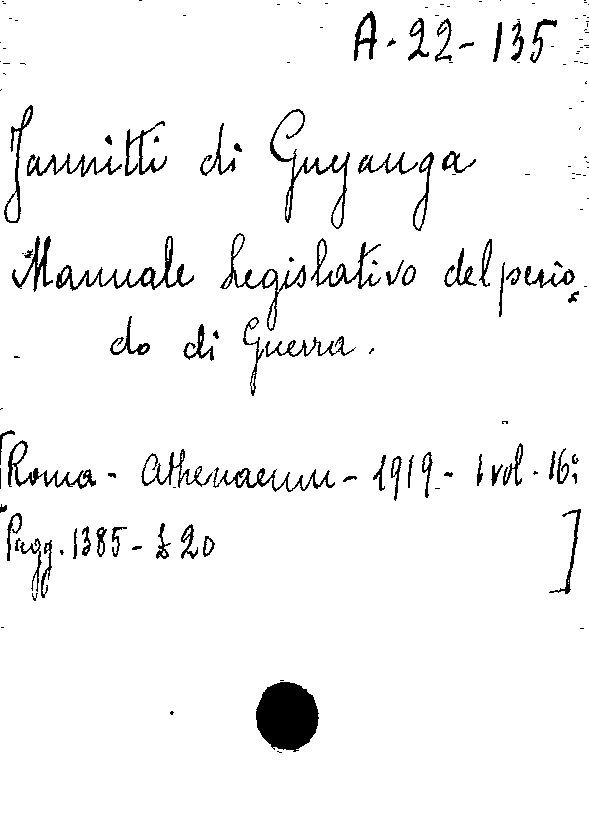 A-22-135
Jannitti di Guyanga
Manuale Legislativo del perio
do di Guerra.
[Roma - Athenaeum - 1919 - 1 vol. 16°;
Pagg. 1385 - £ 20 ]